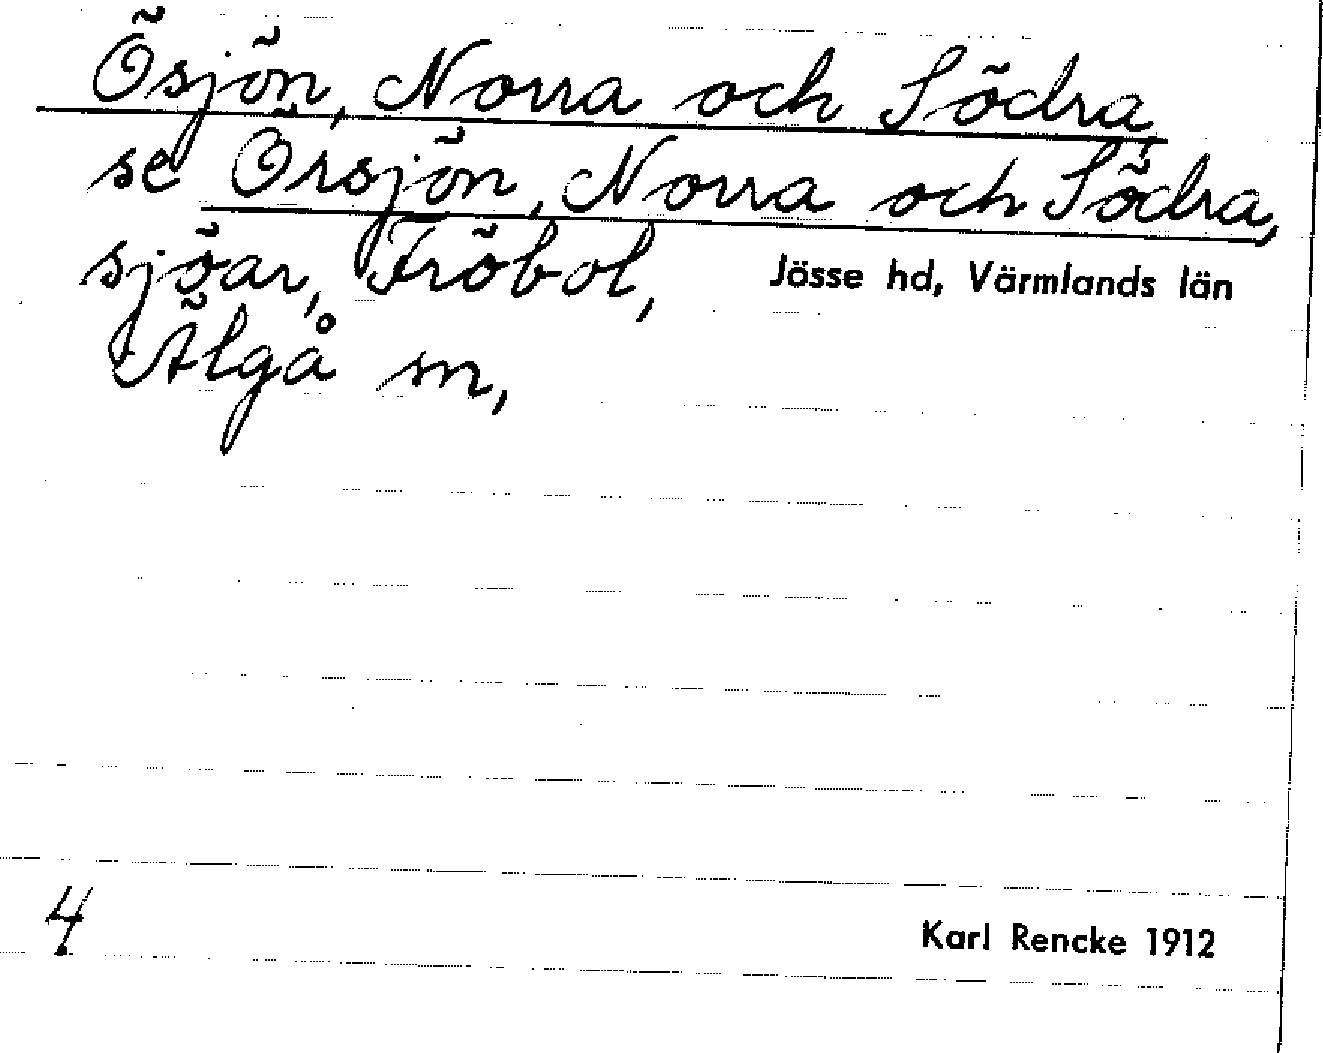 Ösjön, Norra och Södra,
se Örsjön, Norra och Södra,
sjöar, Fröbol,
Jösse hd, Värmlands län
Älgå sn,
4
Karl Rencke 1912